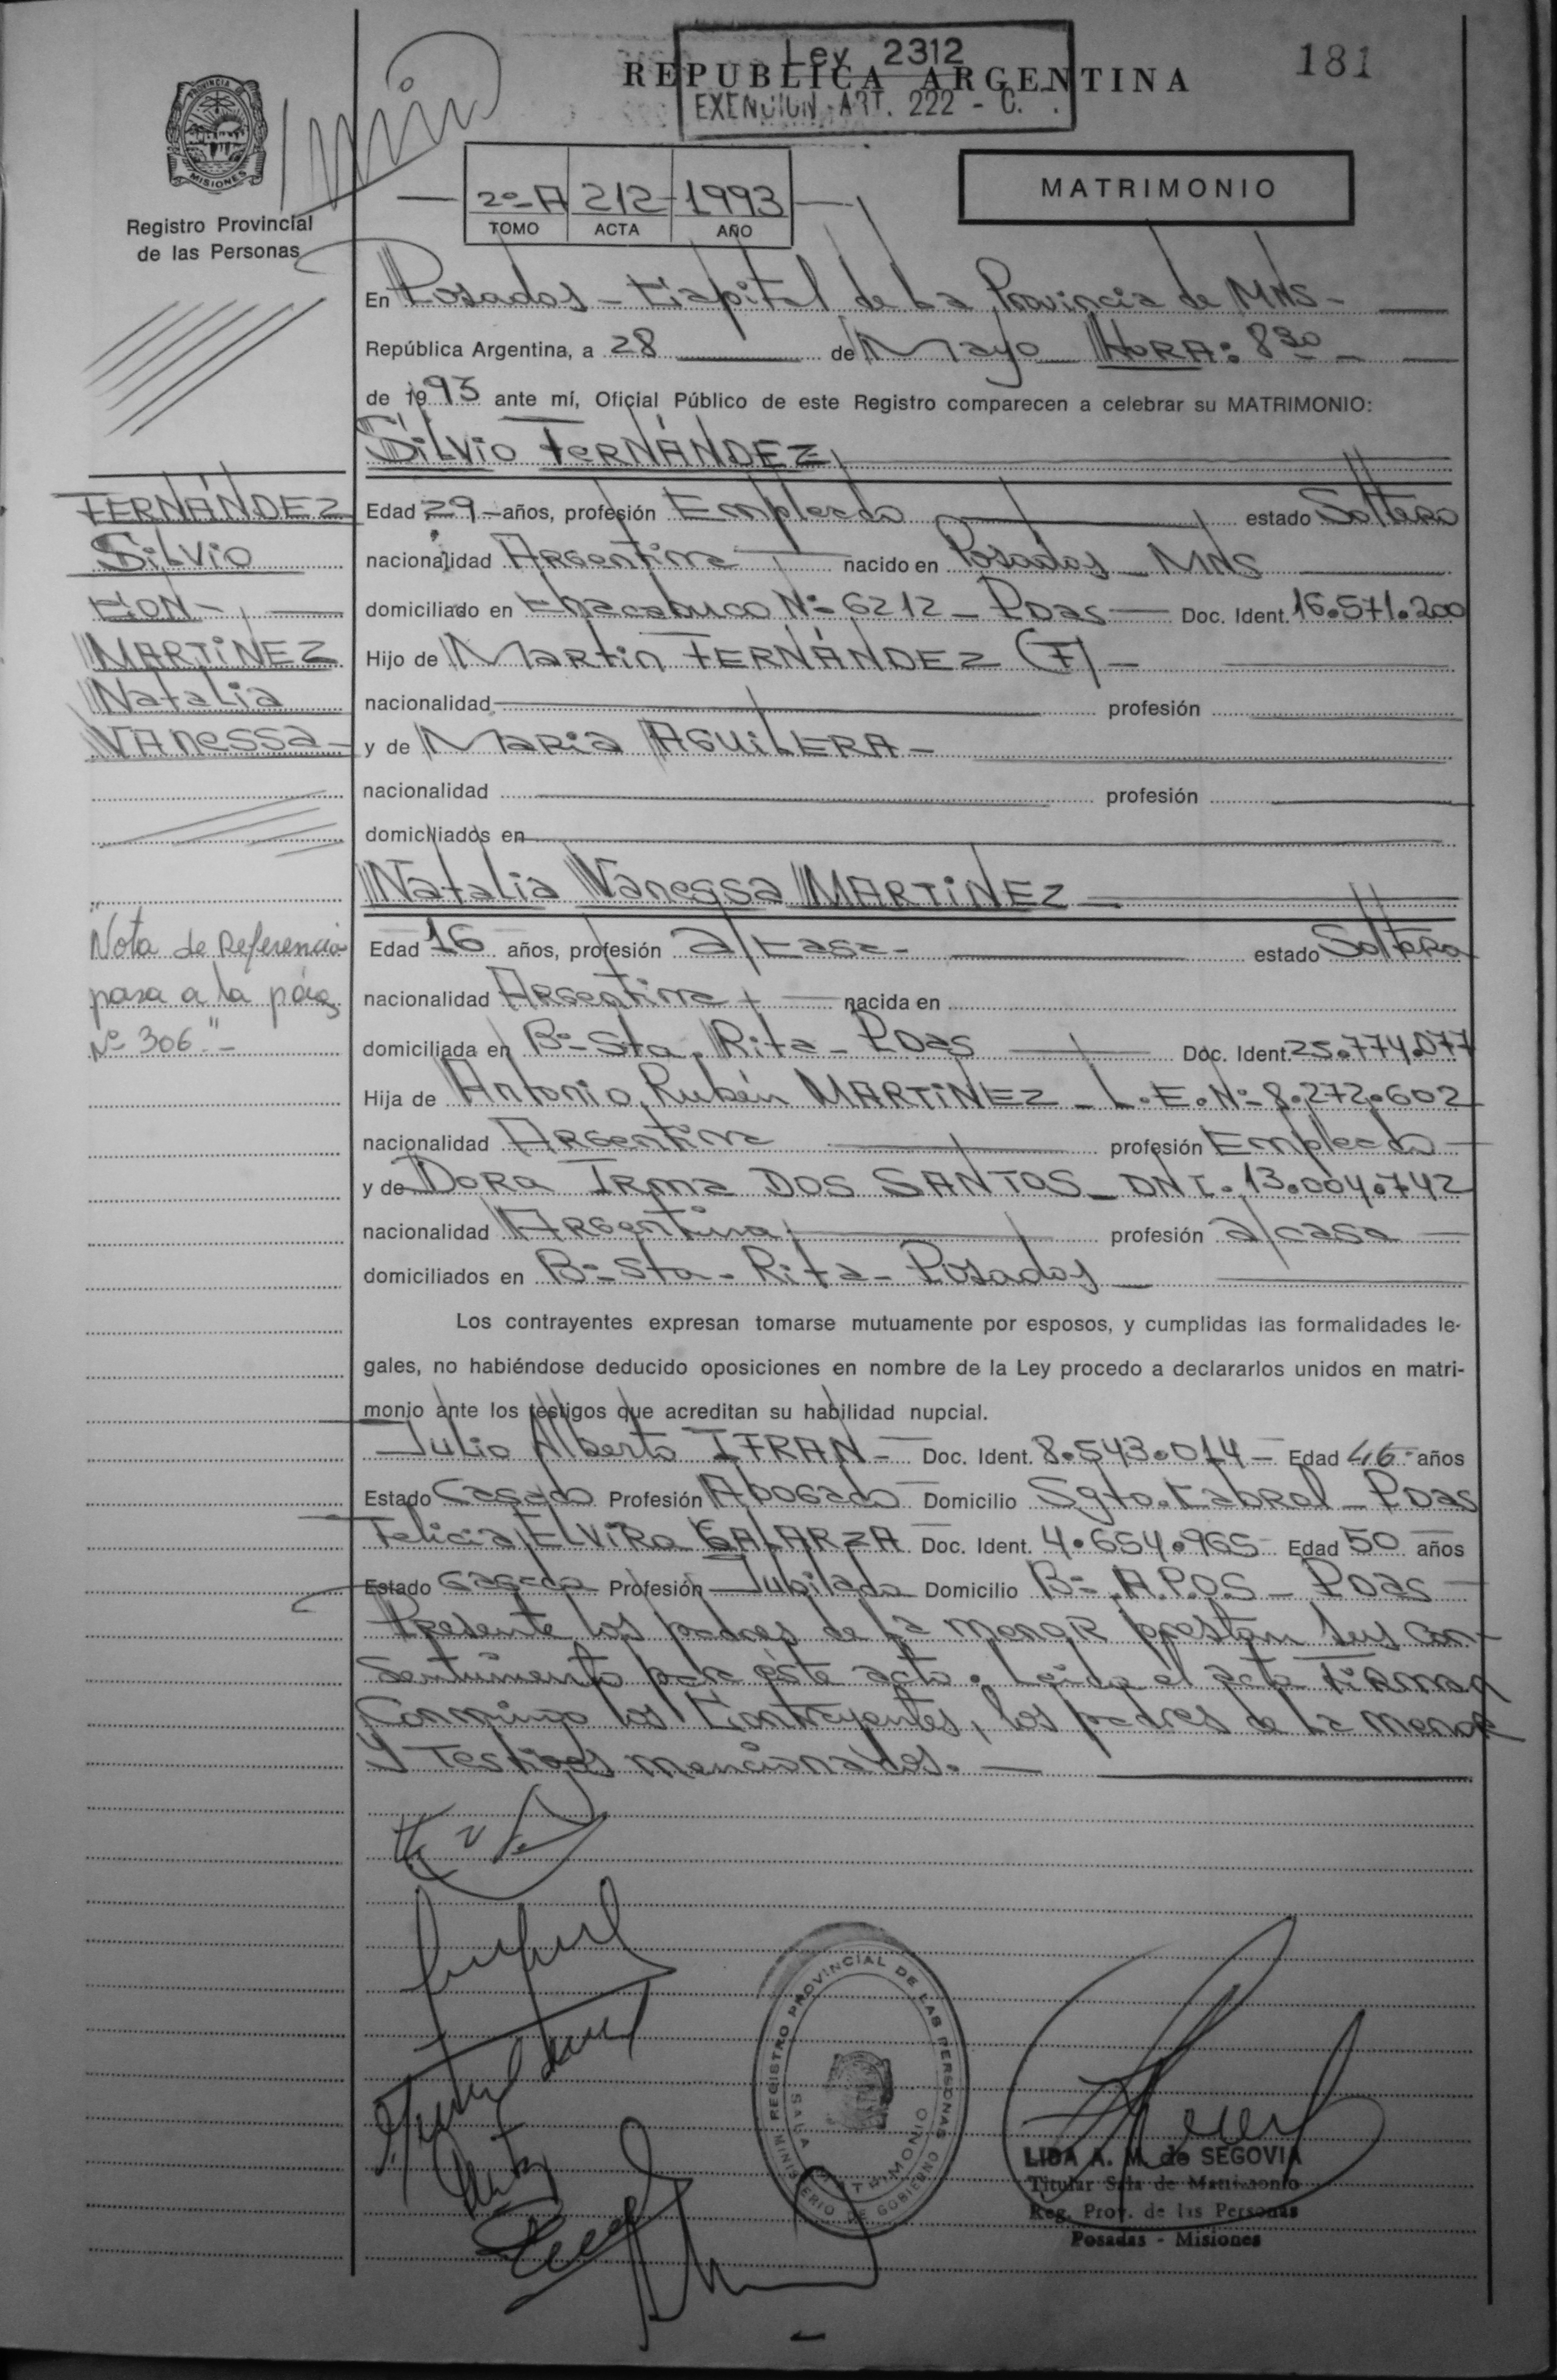 181
Ley 2312
REPUBLICA ARGENTINA
EXENCION ART. 222 - C.
PROVINCIA DE MISIONES
Registro Provincial
de las Personas
2º-A 212 1993
TOMO ACTA AÑO
MATRIMONIO
En Posadas - Capital de La Provincia de MNS-
República Argentina, a 28 de Mayo HORA: 8 30 -
de 1993 ante mí, Oficial Público de este Registro comparecen a celebrar su MATRIMONIO:
SiLvio FERNÁNDEZ
FERNÁNDEZ
SiLvio
CON-
MARTíNEZ
NataLia
VAnessa-
Edad 29-años, profesión Empleado estado Soltero
nacionalidad Argentina nacido en Posadas - MNS
domiciliado en Chacabuco Nº 6212 - Pdas - Doc. Ident. 16.571.200
Hijo de Martín FERNÁNDEZ (F) -
nacionalidad profesión
y de MARíA AGUiLERA -
nacionalidad profesión
domiciliados en
Natalia Vanessa MARTíNEZ
Edad 16 años, profesión a/casa- estado Soltera
nacionalidad Argentina nacida en
domiciliada en Bº- Sta. Rita - Pdas Doc. Ident. 25.774.077
Hija de Antonio Rubén MARTíNEZ - L.E.Nº- 8.272.602
nacionalidad Argentina profesión Empleado -
y de Dora Irma DOS SANTOS - DNI. 13.004.742
nacionalidad Argentina profesión a/casa
domiciliados en Bº- Sta. Rita - Posadas
"Nota de Referencia
pasa a la pág
Nº 306"-
Los contrayentes expresan tomarse mutuamente por esposos, y cumplidas las formalidades le-
gales, no habiéndose deducido oposiciones en nombre de la Ley procedo a declararlos unidos en matri-
monio ante los testigos que acreditan su habilidad nupcial.
Julio Alberto IFRAN - Doc. Ident. 8.543.014 - Edad 46 años
Estado Casado Profesión Abogado Domicilio Sgto. Cabral - Pdas
Felicia ELViRa GALARZA Doc. Ident. 4.654.965 Edad 50 años
Estado Casada Profesión Jubilada Domicilio Bº- A.P.O.S - Pdas
Presente los padres de la menor prestan sus con-
sentimiento para éste acto. Leída el acta firman
Conmigo los Contrayentes, los padres de la menor
y Testigos mencionados.-
REGISTRO PROVINCIAL DE LAS PERSONAS
MINISTERIO DE GOBIERNO
SALA MATRIMONIO
LIDA A. M. de SEGOVIA
Titular Sala de Matrimonio
Reg. Prov. de las Personas
Posadas - Misiones